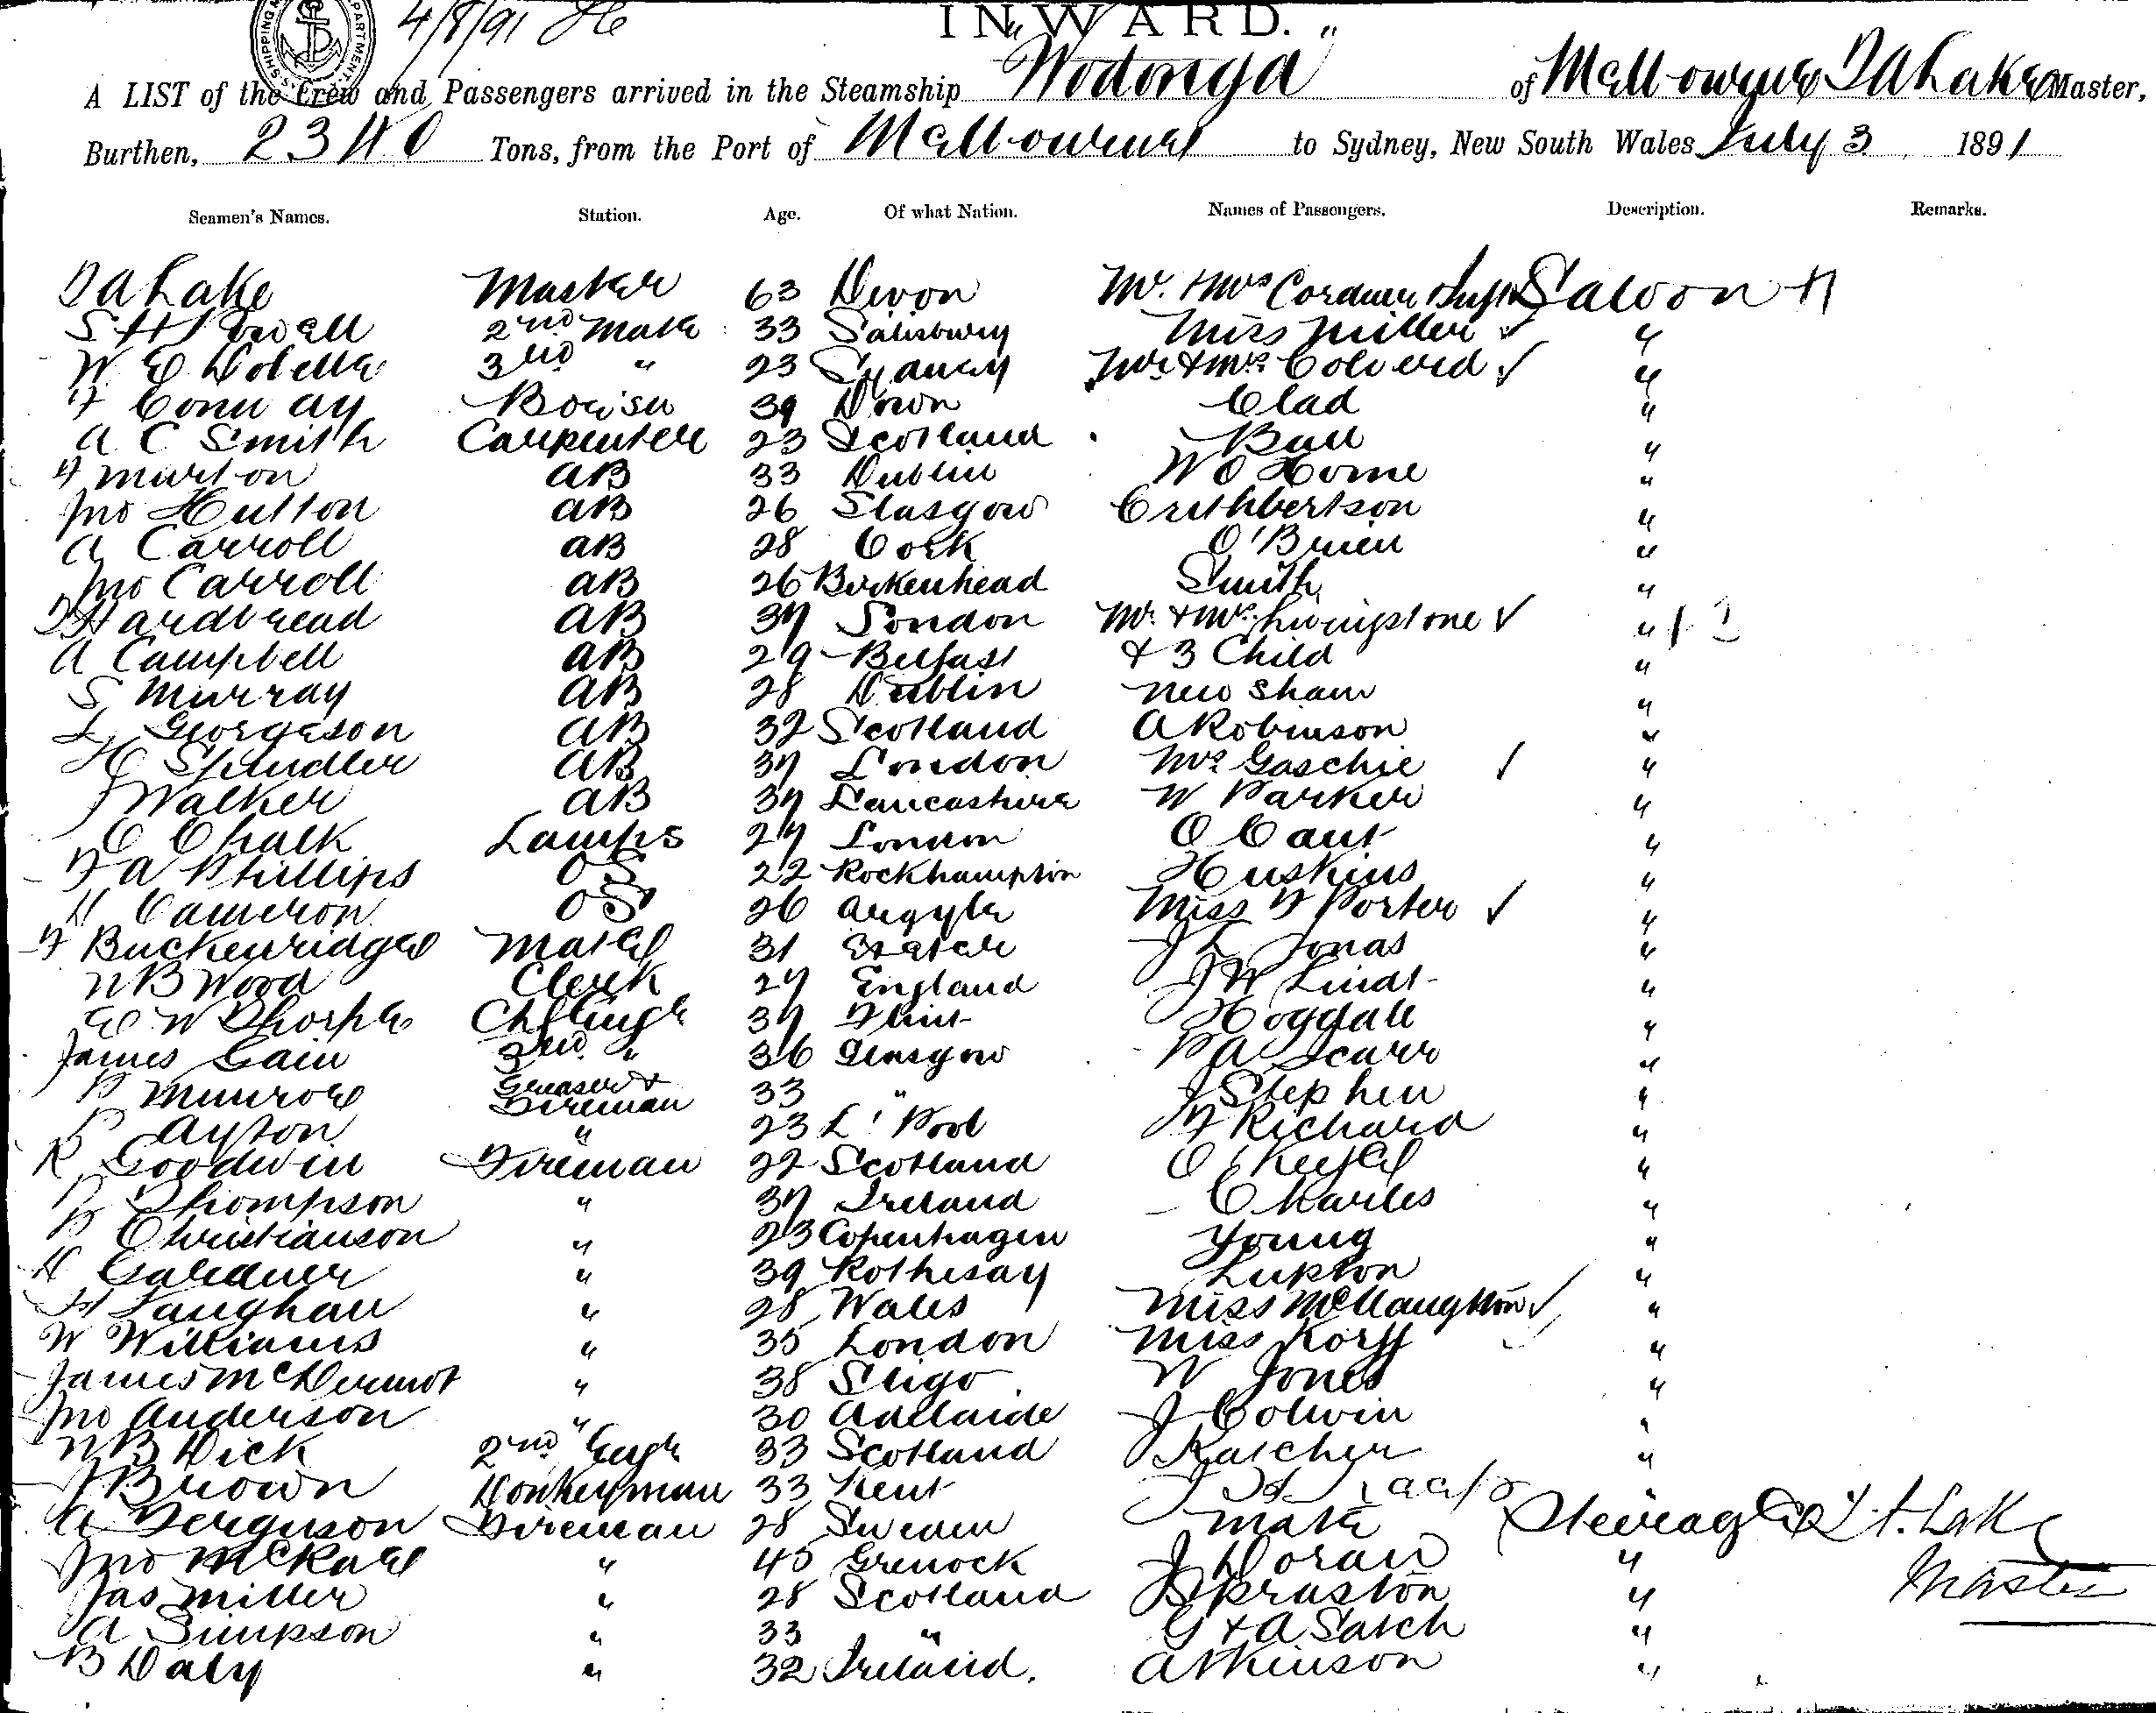 4/8/91
INWARD.
A LIST of the Crew and Passengers arrived in the Steamship "Wodonga" of Melbourne D A Lake Master,
Burthen, 2340 Tons, from the Port of Melbourne to Sydney, New South Wales July 3 1891
Seamen's Names. Station. Age. Of what Nation. Names of Passengers. Description. Remarks.
D A Lake Master 63 Devon Mr. & Mrs Cordner & Inft Saloon
S H Rowell 2nd Mate 33 Salisbury Miss Miller ✓ "
W E Dobelle 3rd " 23 Sydney Mr. & Mrs. Coliverd ✓ "
F Conway Boatsn 39 Down Clad "
A C Smith Carpenter 23 Scotland Ball "
F Murton AB 33 Dublin W O Home "
Jno Hutton AB 26 Glasgow Cruthbertson "
A Carroll AB 28 Cork O'Brien "
Jno Carroll AB 26 Birkenhead Smith "
Hardbread AB 37 London Mr. & Mrs. Livingstone ✓ "
A Campbell AB 29 Belfast & 3 Child "
S Murray AB 28 Dublin Newsham "
L Georgeson AB 32 Scotland A Robinson "
H Spindler AB 37 London Mrs Gaschie ✓ "
J Walker AB 37 Lancashire W Parker "
C Chalk Lamps 27 London O Cant "
F A Phillips OS 22 Rockhampton Huskins "
D Cameron OS 26 Argyle Miss F Porter ✓ "
F Buckenridge Mate 31 Exeter J L Jonas "
N B Wood Clerk 27 England J W Lindt "
E W Thorpe Ch Engr 37 Flint Hogdale "
James Gain 3rd " 36 Glasgow P A Scarr "
P Munroe Greaser & Fireman 33 " J Stephen "
P Ayton " 23 L'Pool F Richard "
R Goodwin Fireman 22 Scotland O'Keefe "
P Thompson " 37 Ireland Charles "
P Christianson " 23 Copenhagen Young "
D Gardner " 39 Rothesay Lupton "
Vaughan " 28 Wales Miss McNaughton ✓ "
W Williams " 35 London Miss Korff "
James McDermot " 38 Sligo W Jones "
Jno Anderson " 30 Adelaide J Colwin "
N B Dick 2nd Engr 33 Scotland Katcher "
J Brown Donkeyman 33 Kent
A Ferguson Fireman 28 Sweden Mate Steerage Lake
Jno McRae " 45 Grenock J Doran " Master
Jas Miller " 28 Scotland Spruston "
A Simpson " 33 " G & A Satch "
B Daly " 32 Ireland. Atkinson "